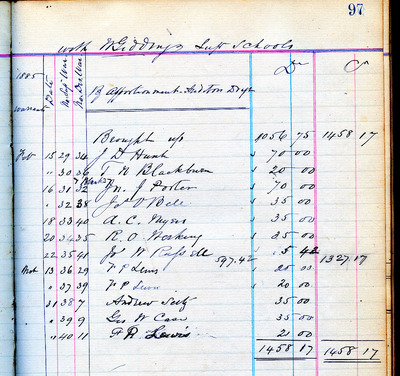 97
with Giddings Supt Schools
1885 Dr Cr
Warrant Date No Sup War No Tres War By apportionment
Brought up 1056 75 1458 17
Feb 15 29 34 J D Hunt 70 00
" 30 36 T H Blackburn 20 00
16 31 32 Jn. J Porter 70 00
" 32 38 Jos O Bell 35 00
18 33 40 A. C. Myers 35 00
20 34 35 R. O. Working 35 00
22 35 41 W 597.42 5 42 1327 17
13 36 29 F P Lewis 20 00
" 37 39 F P Lewis 20 00
31 38 7 Andrew Seitz 35 00
" 39 9 Geo W Case 35 00
" 40 11 F P Lewis 21 00
1458 17 1458 17